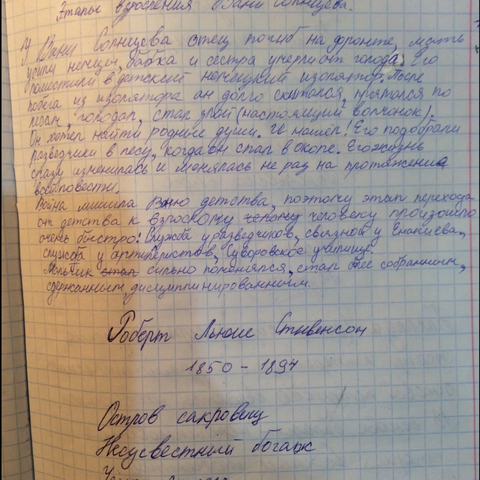 Этапы взросления Вани Солнцева.
У Вани Солнцева отец погиб на фронте, мать
убили немцы, бабка и сестра умерли от голода. Его
поместили в детский немецкий изолятор. После
побега из изолятора он долго скитался, прятался по
лесам, голодал, стал злой (настоящий волчонок).
Он хотел найти родные души. И нашёл! Его подобрали
разведчики в лесу, когда он спал в окопе. Его жизнь
сразу изменилась и менялась не раз на протяжении
всей повести.
Война лишила Ваню детства, поэтому этап перехода
от детства к взрослому человеку произошло
очень быстро: Служба у разведчиков, связной у Енакиева,
служба у артилеристов, Суворовское училище.
Мальчик стал сильно поменялся, стал более собранным,
сдержанным дисциплинированным.
Роберт Льюис Стивенсон
1850 - 1894
Остров сакровищ